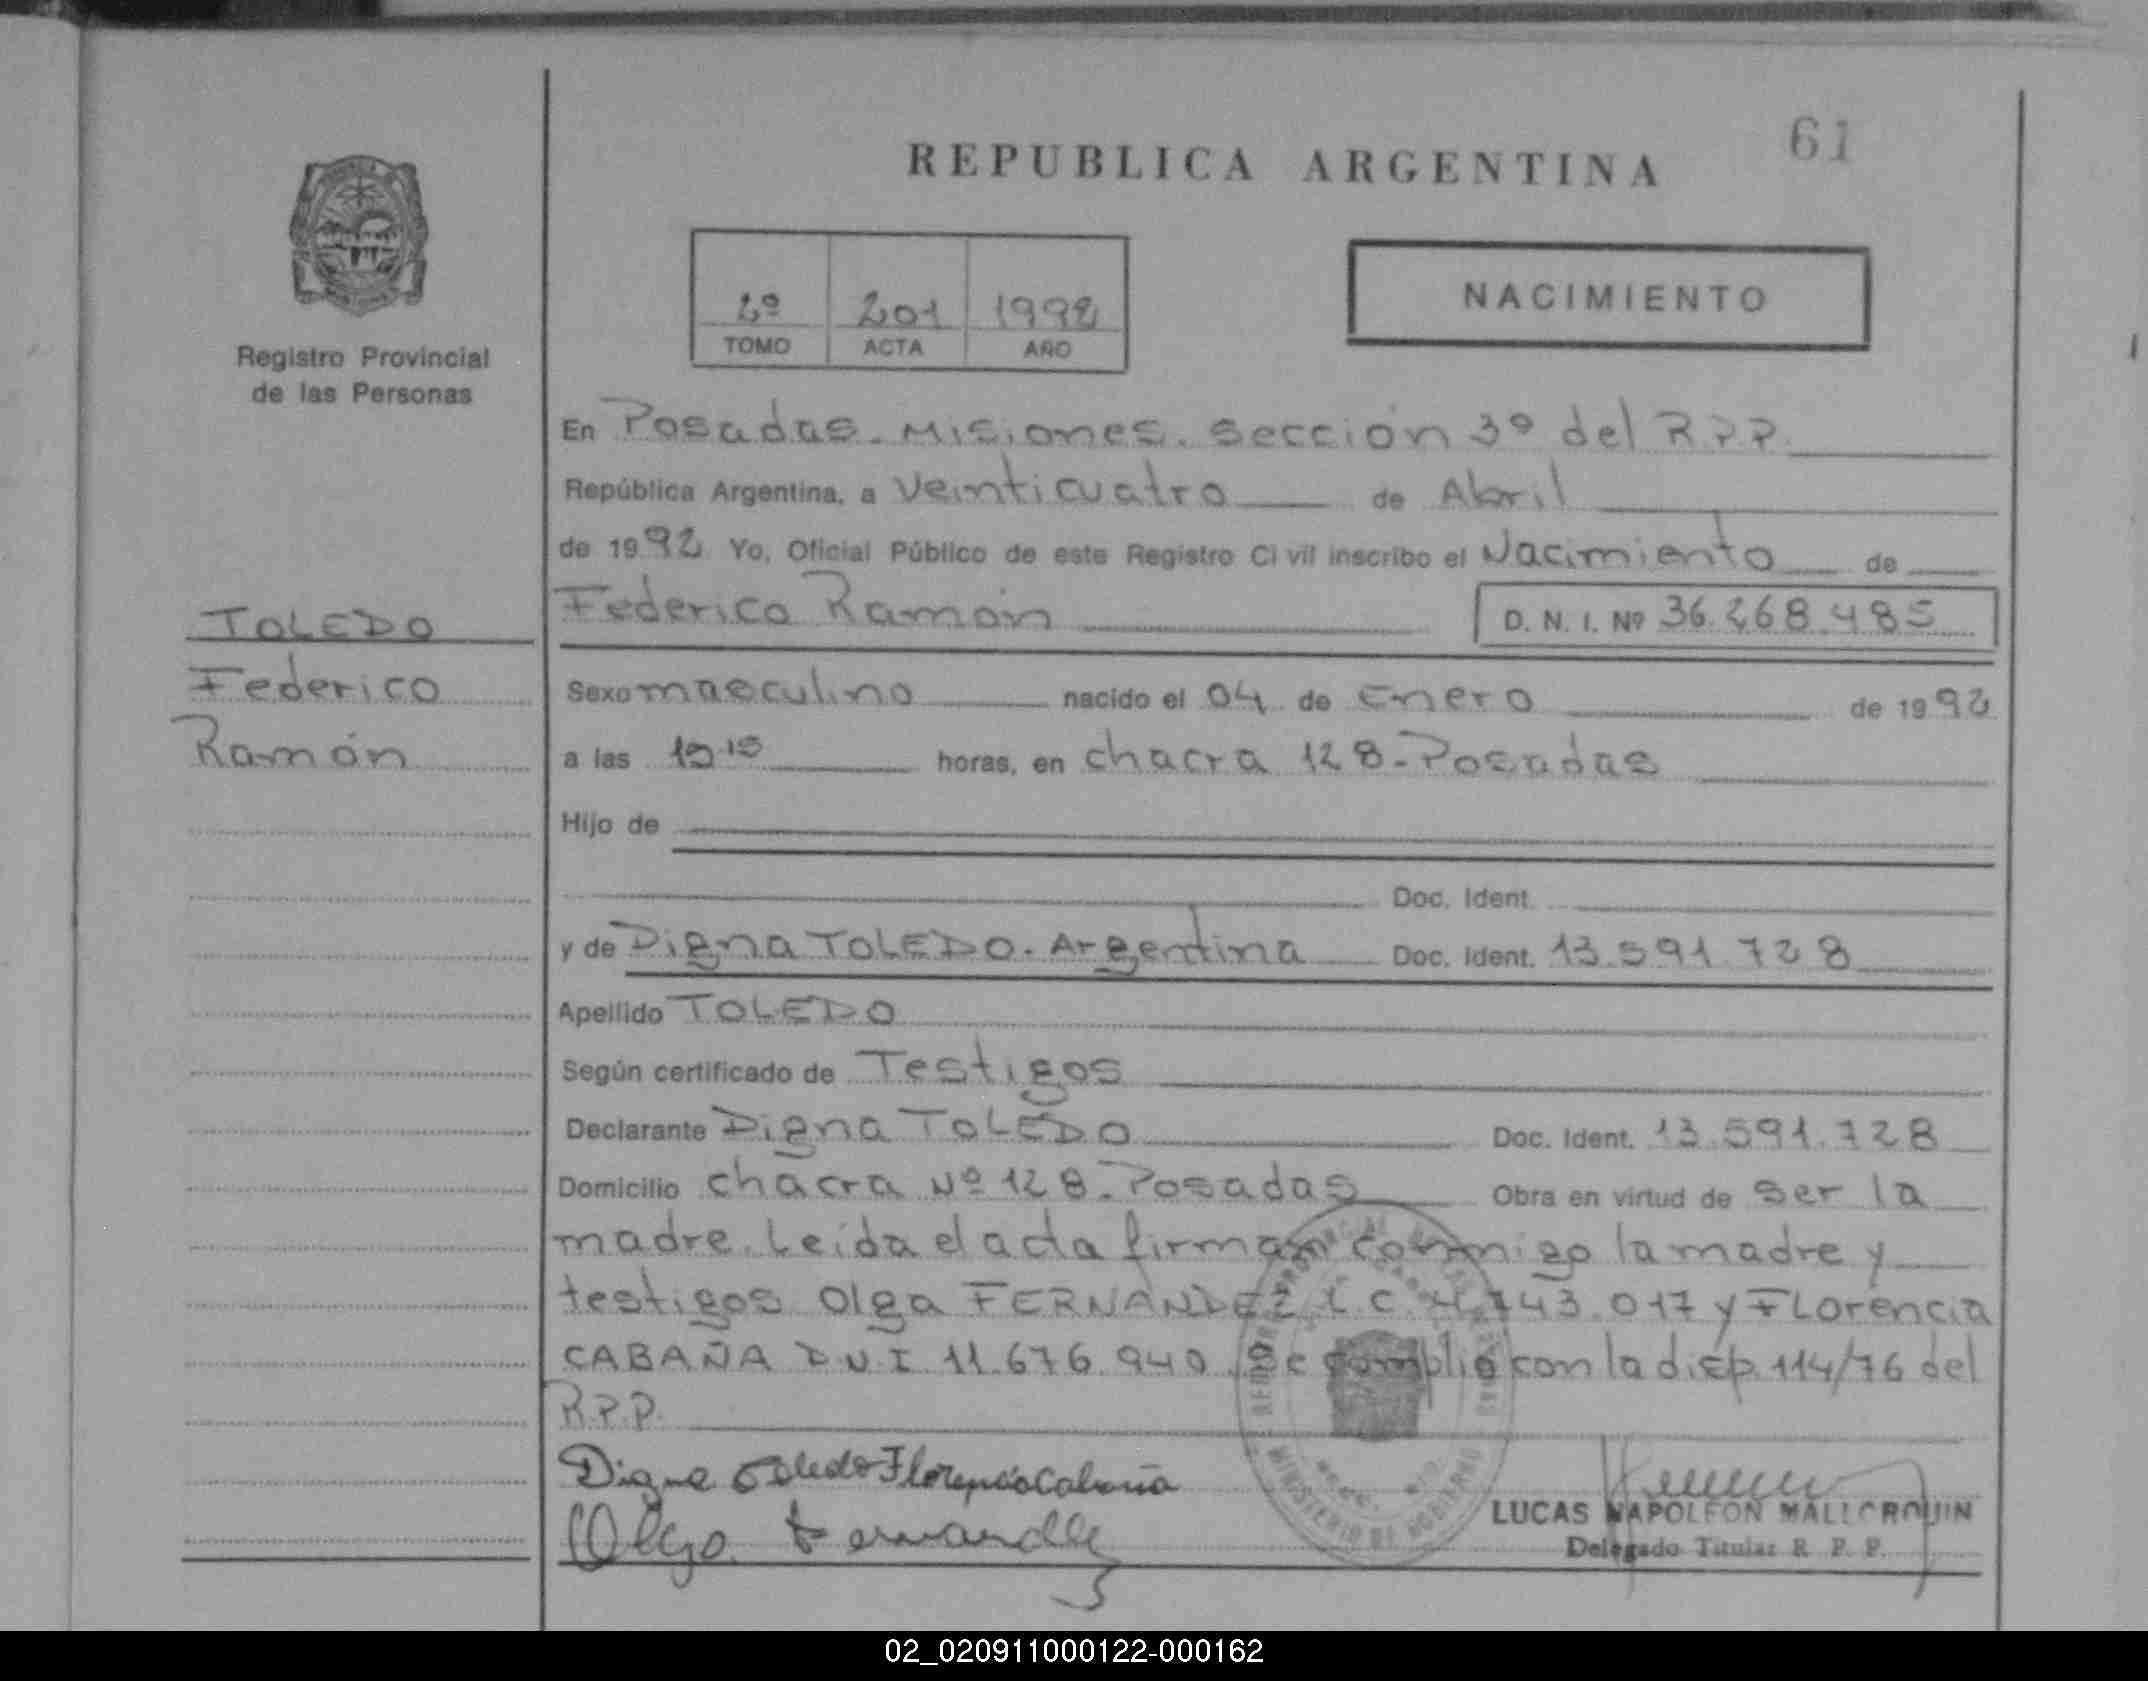 61
REPUBLICA ARGENTINA
2º 201 1992
TOMO ACTA AÑO
NACIMIENTO
Registro Provincial
de las Personas
En Posadas. Misiones. Sección 3º del R.P.P.
República Argentina, a Veinticuatro de Abril
de 1992 Yo, Oficial Público de este Registro Civil inscribo el Nacimiento de
Federico Ramón D. N. I. Nº 36.268.485
TOLEDO
Federico
Ramón
Sexo masculino nacido el 04 de Enero de 1992
a las 19 15 horas, en chacra 128 - Posadas
Hijo de
Doc. Ident.
y de Digna TOLEDO. Argentina Doc. Ident. 13.591.728
Apellido TOLEDO
Según certificado de Testigos
Declarante Digna TOLEDO Doc. Ident. 13.591.728
Domicilio chacra Nº 128. Posadas Obra en virtud de ser la
madre. Leída el acta firman conmigo la madre y
testigos Olga FERNANDEZ L.C. 4.743.017 y Florencia
CABAÑA D.N.I 11.676.940. Se complió con la disp. 114/76 del
R.P.P.
Digna Toledo Florencia Cabaña
Olga Fernandez
MINISTERIO DE GOBIERNO
LUCAS NAPOLEON MALLORQUIN
Delegado Titular R. P. P.
02_020911000122-000162